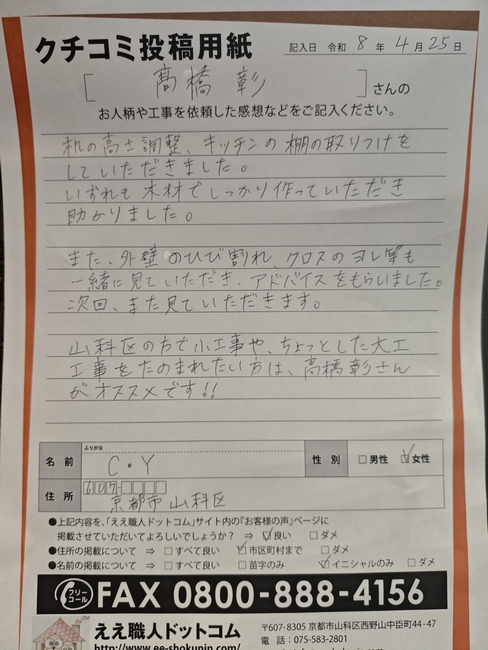 クチコミ投稿用紙
記入日 令和 8 年 4 月 25 日
[ 髙橋 彰 ] さんの
お人柄や工事を依頼した感想などをご記入ください。
机の高さ調整、キッチンの棚の取りつけを
していただきました。
いずれも木材でしっかり作っていただき
助かりました。
また、外壁のひび割れ、クロスのヨレ等も
一緒に見ていただき、アドバイスをもらいました。
次回、また見ていただきます。
山科区の方で小工事や、ちょっとした大工
工事をたのまれたい方は、髙橋彰さん
がオススメです!!
ふりがな
名前 C・Y 性別 □男性 ☑女性
住所 607-
京都市山科区
●上記内容を、「ええ職人ドットコム」サイト内の『お客様の声』ページに
掲載させていただいてよろしいでしょうか? ⇒ ☑良い □ダメ
●住所の掲載について ⇒ □すべて良い ☑市区町村まで □ダメ
●名前の掲載について ⇒ □すべて良い □苗字のみ ☑イニシャルのみ □ダメ
フリーコール FAX 0800-888-4156
ええ職人ドットコム
〒607-8305 京都市山科区西野山中臣町44-47
電話:075-583-2801
http://www.ee-shokunin.com/